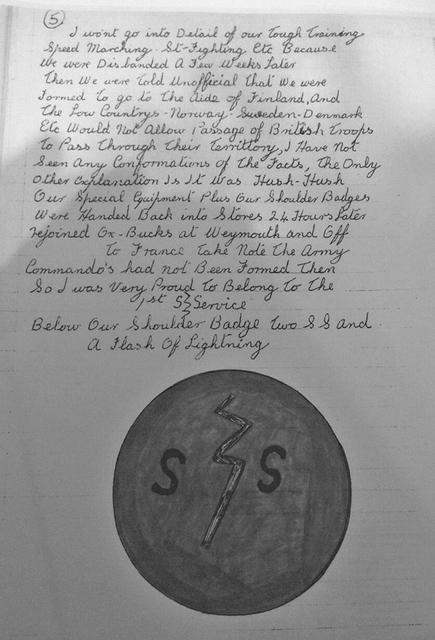 5
I wont go into Detail of our Tough Training
Speed Marching - St-Fighting Etc Because
We were Disbanded A Few Weeks Later
Then We were Told Unofficial That We were
Formed To go To The Aide of Finland, And
The Low Countrys - Norway - Sweden - Denmark
Etc Would Not Allow Passage of British Troops
To Pass Through Their Territtory, I Have Not
Seen Any Conformations of The Facts, The Only
Other Explanation Is It Was Hush-Hush
Our Special Equipment Plus Our Shoulder Badges
Were Handed Back into Stores 24 Hours Later
rejoined Ox-Bucks at Weymouth and Off
To France Take Note The Army
Commando's had not Been Formed Then
So I was Very Proud To Belong To The
1st S S Service
Below Our Shoulder Badge Two S S And
A Flash Of Lightning
S S